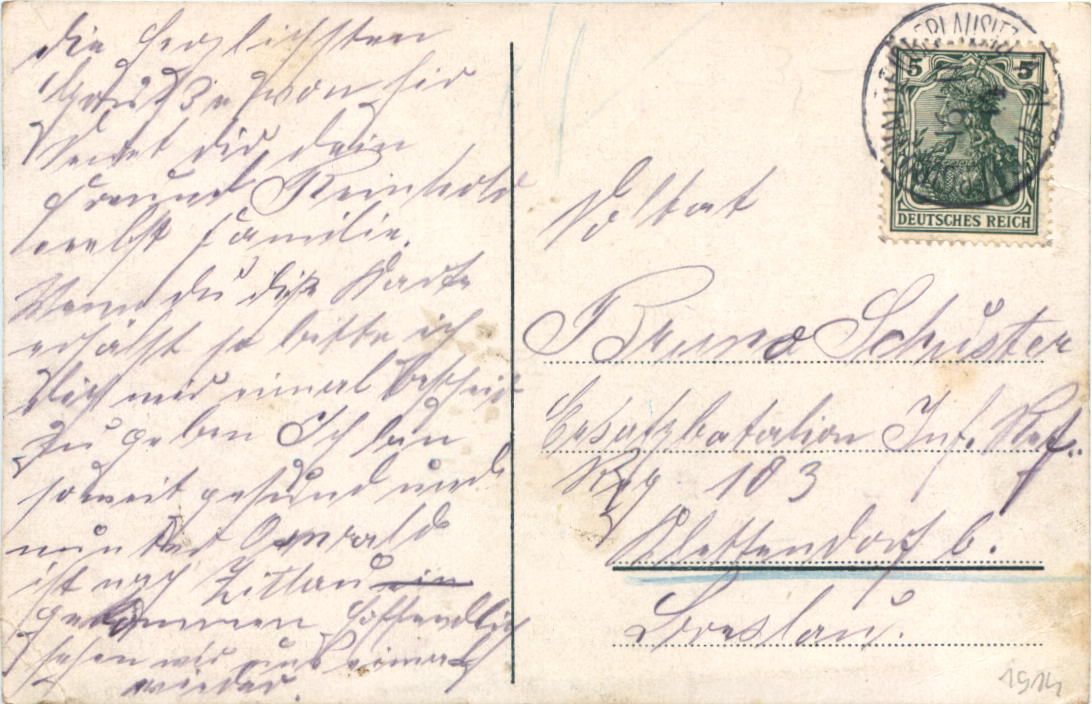 die herzlichsten
Grüße von hir
sendet dir dein
Freund Reinhold
nebst Familie.
Wenn du diese Karte
erhälst so bitte ich
dich mir einmal bescheit
zu geben Ich bin
soweit gesund und
munter Oswald
ist nach Zittau in
gekommen hoffendlich
sehen wir uns einmal
wieder.
OBERLAUSITZ
5 5
DEUTSCHES REICH
Soltat
Bruno Schuster
Ersatzbatalion Inf. Res.
Reg 103
Klettendorf b.
Breslau.
1914